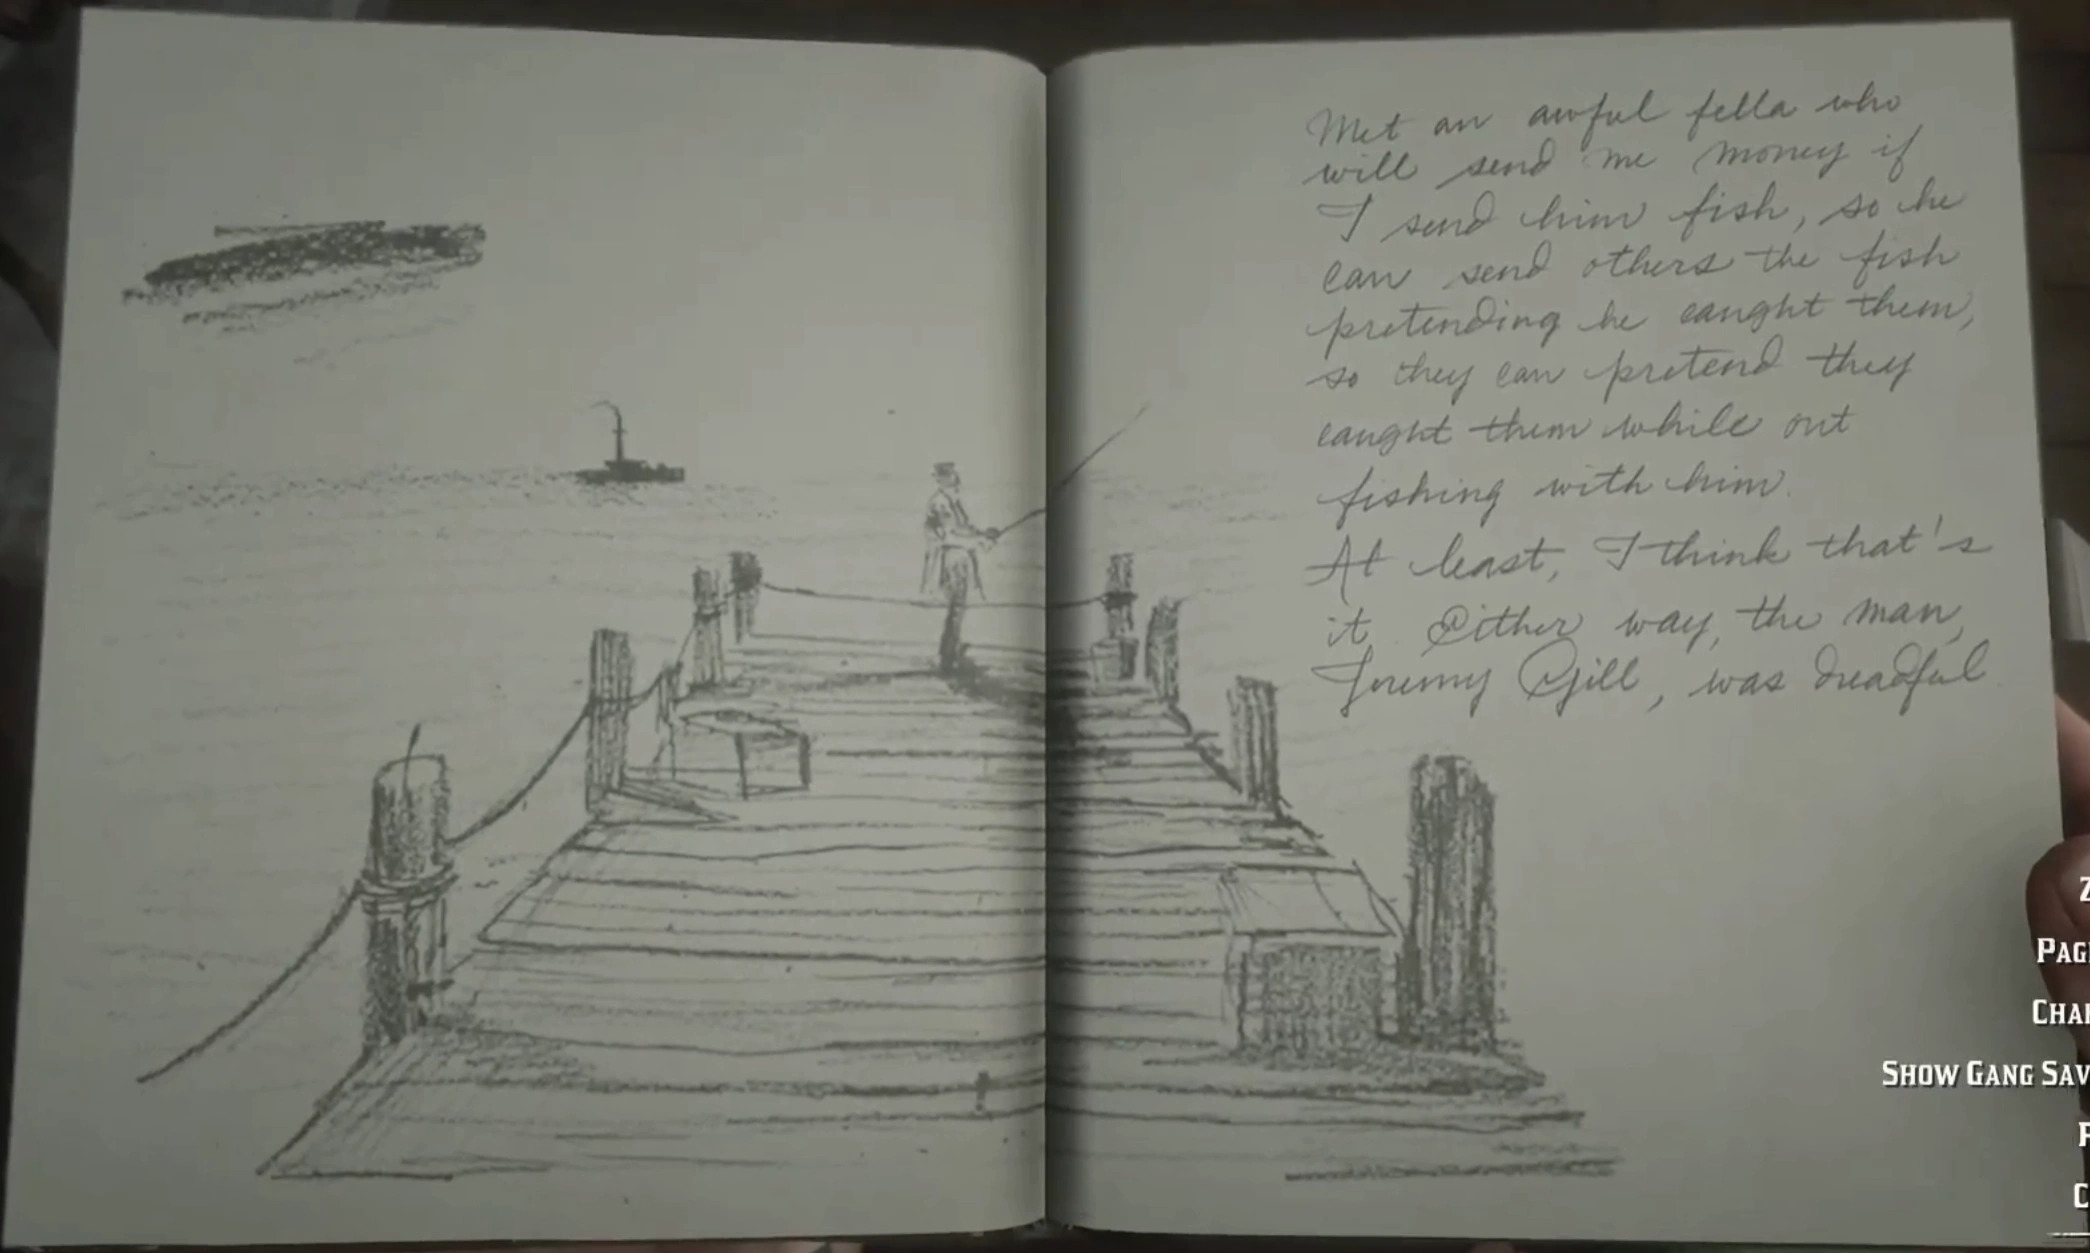 Met an awful fella who
will send me money if
I send him fish, so he
can send others the fish
pretending he caught them,
so they can pretend they
caught them while out
fishing with him.
At least, I think that's
it. Either way, the man,
Jeremy Gill, was dreadful
Z
PAG
CHA
SHOW GANG SAV
P
C